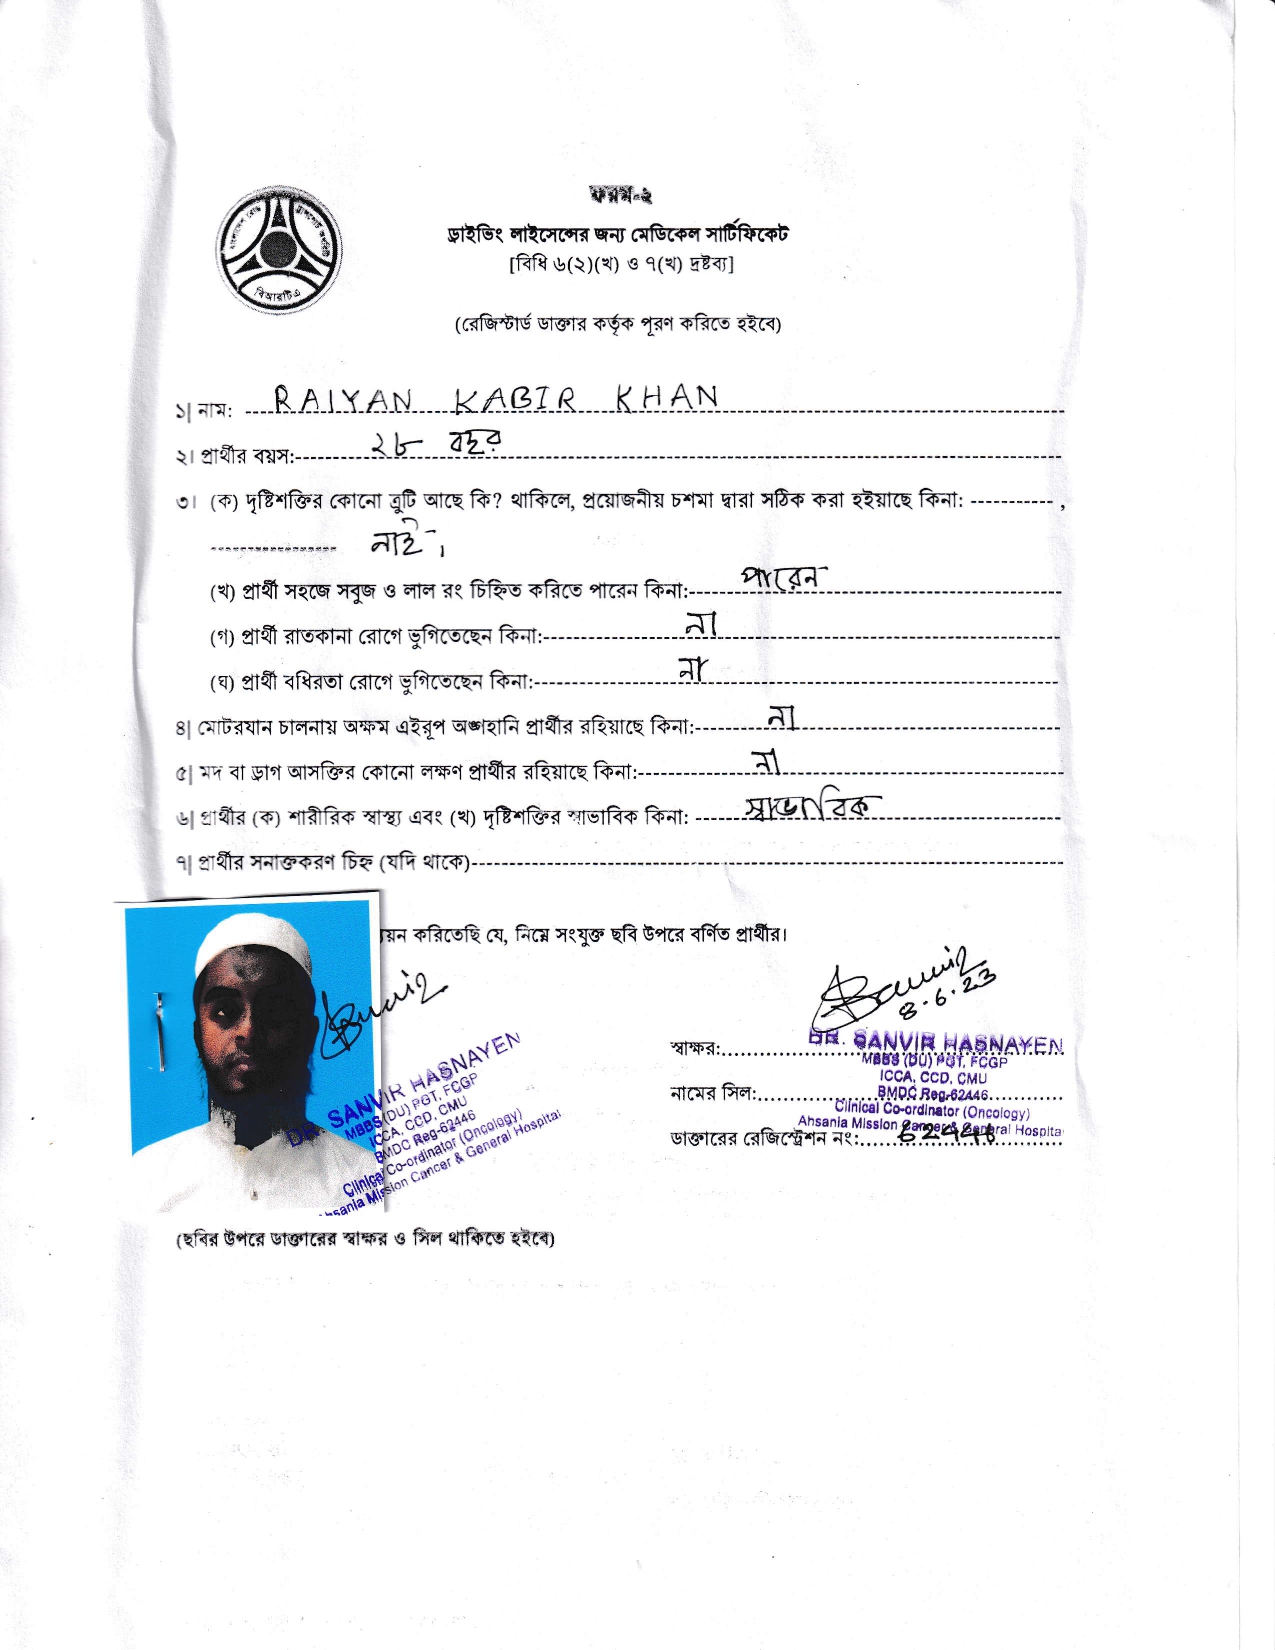 ফরম-২
ড্রাইভিং লাইসেন্সের জন্য মেডিকেল সার্টিফিকেট
[বিধি ৬(২)(খ) ও ৭(খ) দ্রষ্টব্য]
বিআরটিএ
(রেজিস্টার্ড ডাক্তার কর্তৃক পূরণ করিতে হইবে)
১| নাম: RAIYAN KABIR KHAN
২। প্রার্থীর বয়স: ২৮ বছর
৩। (ক) দৃষ্টিশক্তির কোনো ত্রুটি আছে কি? থাকিলে, প্রয়োজনীয় চশমা দ্বারা সঠিক করা হইয়াছে কিনা: ----------- ,
নাই।
(খ) প্রার্থী সহজে সবুজ ও লাল রং চিহ্নিত করিতে পারেন কিনা: পারেন
(গ) প্রার্থী রাতকানা রোগে ভুগিতেছেন কিনা: না
(ঘ) প্রার্থী বধিরতা রোগে ভুগিতেছেন কিনা: না
৪| মোটরযান চালনায় অক্ষম এইরূপ অঙ্গহানি প্রার্থীর রহিয়াছে কিনা: না
৫| মদ বা ড্রাগ আসক্তির কোনো লক্ষণ প্রার্থীর রহিয়াছে কিনা: না
৬| প্রার্থীর (ক) শারীরিক স্বাস্থ্য এবং (খ) দৃষ্টিশক্তির স্বাভাবিক কিনা: স্বাভাবিক
৭| প্রার্থীর সনাক্তকরণ চিহ্ন (যদি থাকে)
করিতেছি যে, নিম্নে সংযুক্ত ছবি উপরে বর্ণিত প্রার্থীর।
8.6.23
স্বাক্ষর: DR. SANVIR HASNAYEN
MBBS (DU) PGT, FCGP
ICCA, CCD, CMU
নামের সিল: BMDC Reg-62446
Clinical Co-ordinator (Oncology)
Ahsania Mission Cancer & General Hospita
ডাক্তারের রেজিস্ট্রেশন নং: 62446
DR. SANVIR HASNAYEN
MBBS (DU) PGT, FCGP
ICCA, CCD, CMU
BMDC Reg-62446
Clinical Co-ordinator (Oncology)
Mission Cancer & General Hospital
(ছবির উপরে ডাক্তারের স্বাক্ষর ও সিল থাকিতে হইবে)